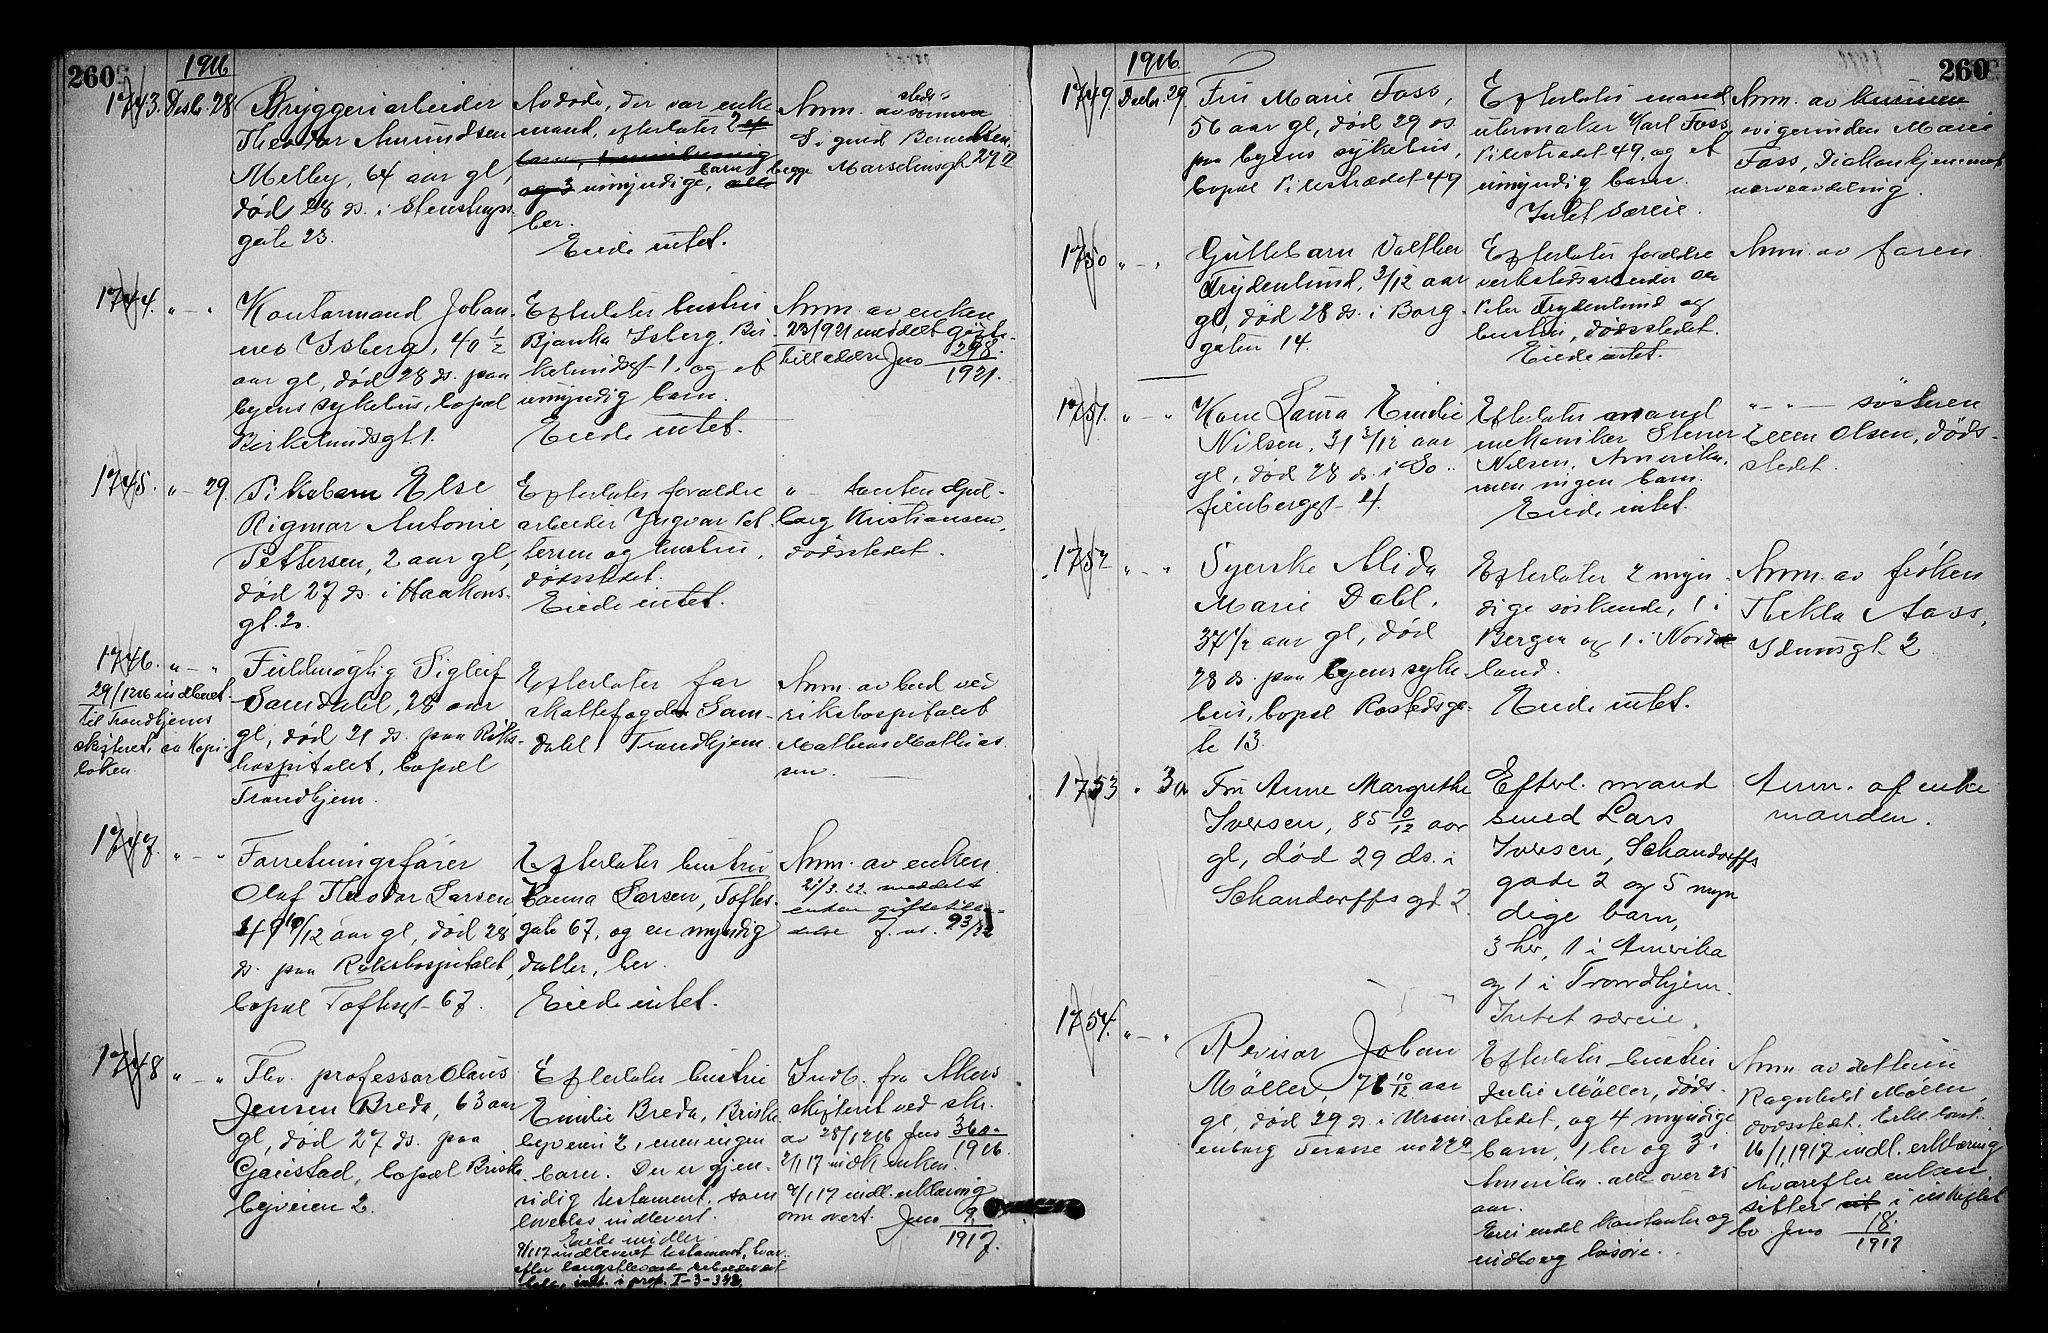 260
1916
1743. Desb. 28
Bryggeriarbeider
Theodor Amundsen
Melby, 64 aar gl,
død 28 ds. i Stenstrups
gate 23.
Avdøde, der var enke
mand, efterlater 2 af
barn, 1 myndig
og 3 umyndige, barn alle
her.
Eiede intet.
Anm. av sted-
sønnen
Sigurd Berntsen,
begge Marselisgt. 29
1744. " - "
Kontormand Johan-
nes Isberg, 40 1/2
aar gl, død 28 ds. paa
byens sykehus, bopæl
Birkelundsgt 1.
Efterlater hustru
Bjanka Isberg, Bir-
kelundsgt 1, og et
umyndig barn.
Eiede intet.
Anm. av enken
23/9 21 meddelt gifte-
tilladelse Jno 298.
1921.
1745. " - 29.
Pikebarn Else
Rigmor Antonie
Pettersen, 2 aar gl,
død 27 ds. i Haakons-
gt. 20.
Efterlater forældre
arbeider Yngvar Pet-
tersen og hustru,
dødsstedet.
Eiede intet.
" - tanten Gul-
borg Kristiansen,
dødsstedet.
1746. " - "
29/12 16 indberet.
til Trondhjems
skifteret, se Kopi-
boken.
Fuldmægtig Sigleif
Samdahl, 28 aar
gl, død 21 ds. paa Riks-
hospitalet, bopæl
Trondhjem.
Efterlater far
skattefoged Sam-
dahl, Trondhjem
Anm. av bud ved
rikshospitalet
Mathias Mathias-
sen.
1747. " - "
Forretningsfører
Olaf Theodor Larsen
49 10/12 aar gl, død 28
ds. paa Rikshospitalet,
bopæl Toftesgt 67.
Efterlater hustru
Hanna Larsen, Toftes-
gate 67, og en myndig
datter, her.
Eiede intet.
Anm. av enken.
21/3.22. meddelt
enken giftetilla-
delse J. no. 93/22
1748 " - "
Fhv. professor Olaus
Jensen Breda, 63 aar
gl, død 27 ds. paa
Gaustad, bopæl Briske-
byveien 2.
Efterlater hustru
Emilie Breda, Briske-
byveien 2, men ingen
barn. Der er gjen-
sidig testament, som
lovedes indlevert.
Eiede midler.
9/1 17 indleveret testament, hvor-
efter længstlevende
indt. i prot. I-3-342
Indb. fra Akers
skifteret ved skr.
av 28/12 16 Jno 360.
1916.
2/1 17 indk. enken.
9/1 17 indl. erklæring
om overt. Jno 9.
1917.
260
1916.
1749. Decbr. 29.
Fru Marie Foss,
56 aar gl, død 29 ds.
paa byens sykehus,
bopæl Pilestrædet 49
Efterlater mand
urmaker Karl Foss
Pilestrædet 49, og et
umyndig barn.
Intet særeie.
Anm. av
svigerinden Marie
Foss, Diakonhjemmet
nerveavdeling.
1750 " - "
Guttebarn Valther
Frydenlund, 3/12 aar
gl, død 28 ds. i Borg-
gaten 14.
Efterlater forældre
verkstedsarbeider
Peter Frydenlund og
hustru, dødsstedet.
Eiede intet.
Anm. av faren.
1751. " - "
Kone Laura Emilie
Nilsen, 31 3/12 aar
gl, død 28 ds. i So-
fienberggt 4.
Efterlater mand
mekaniker Stener
Nilsen, Amerika,
men ingen barn.
Eiede intet.
" - " - søsteren
Ellen Olsen, døds-
stedet.
1752 " - "
Syerske Alida
Marie Dahl,
37 1/2 aar gl, død
28 ds. paa byens syke-
hus, bopæl Rostedsga-
te 13.
Efterlater 2 myn-
dige søskende, 1 i
Bergen og 1 i Nord-
land.
Eiede intet.
Anm. av frøken
Thekla Aass,
Idunsgt. 2.
1753 " 30
Fru Anne Margrethe
Iversen, 85 10/12 aar
gl, død 29 ds. i
Schandorffs gt. 2
Efterl. mand
smed Lars
Iversen, Schandorffs
gade 2 og 5 myn
dige barn,
3 her, 1 i Amerika
og 1 i Trondhjem.
Intet særeie.
Anm. af enke
manden.
1754. " - "
Revisor Johan
Møller, 76 10/12 aar
gl, død 29 ds. i Urani-
enborg Terasse no 22a
Efterlater hustru
Julie Møller, døds-
stedet, og 4 myndige
barn, 1 her og 3 i
Amerika. alle over 25
aar.
Eier endel kontanter og
indbo og løsøre.
Anm. av datteren
Ragnhild Møller,
dødsstedet.
16/1 1917 indl. erklæring
hvorefter enken
sitter i uskiftet
bo. Jno 18.
1917